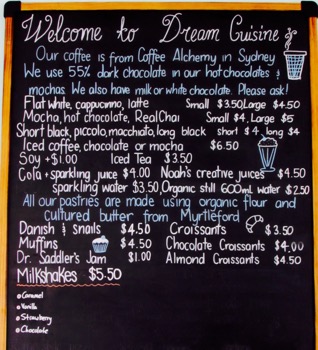 Welcome to Dream Cuisine
Our coffee is from Coffee Alchemy in Sydney
We use 55% dark chocolate in our hot chocolates &
mochas. We also have milk or white chocolate. Please ask!
Flat white, cappuccino, latte Small $3.50, Large $4.50
Mocha, hot chocolate, Real Chai Small $4, Large $5
Short black, piccolo, macchiato, long black short $4, long $4
Iced coffee, chocolate or mocha $6.50
Soy +$1.00 Iced Tea $3.50
Cola + sparkling juice $4.00 Noah's creative juices $4.50
sparkling water $3.50, Organic still 600mL water $2.50
All our pastries are made using organic flour and
cultured butter from Myrtleford
Danish & snails $4.50 Croissants $3.50
Muffins $4.50 Chocolate Croissants $4.00
Dr. Saddler's Jam $1.00 Almond Croissants $4.50
Milkshakes $5.50
Caramel
Vanilla
Strawberry
Chocolate